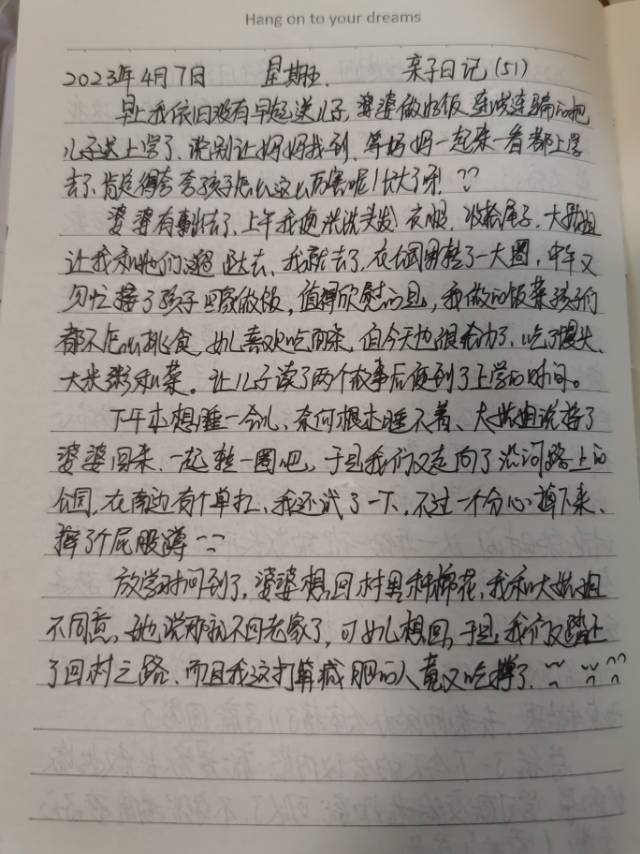 Hang on to your dreams
2023年4月7日 星期五. 亲子日记(51)
早上我依旧没有早起送儿子,婆婆做好饭连哄连骗的把
儿子送上学了.说别让妈妈找到.等妈妈一起来一看都上学
去了.肯定得夸夸孩子怎么这么厉害呢!长大了呀.
婆婆有事出去了,上午我便洗洗头发、衣服.收拾屋子.大姑姐
让我和她们遛达去、我就去了,在公园里转了一大圈,中午又
匆忙接了孩子回家做饭,值得欣慰的是,我做的饭菜孩子们
都不怎么挑食,女儿喜欢吃面条,但今天也很给力了.吃了馒头、
大米粥和菜。让儿子读了两个故事后便到了上学的时间。
下午本想睡一会儿、奈何根本睡不着、大姑姐说接了
婆婆回来.一起转一圈吧,于是我们又走向了沿河路上的
公园,在南边有个单杠、我还试了一下,不过一不分心掉下来、
摔了个屁股蹲
放学时间到了,婆婆想回村里种棉花,我和大姑姐
不同意,她说那就不回老家了,可女儿想回,于是,我们又踏上
了回村之路.而且我这打算减肥的人竟又吃撑了.